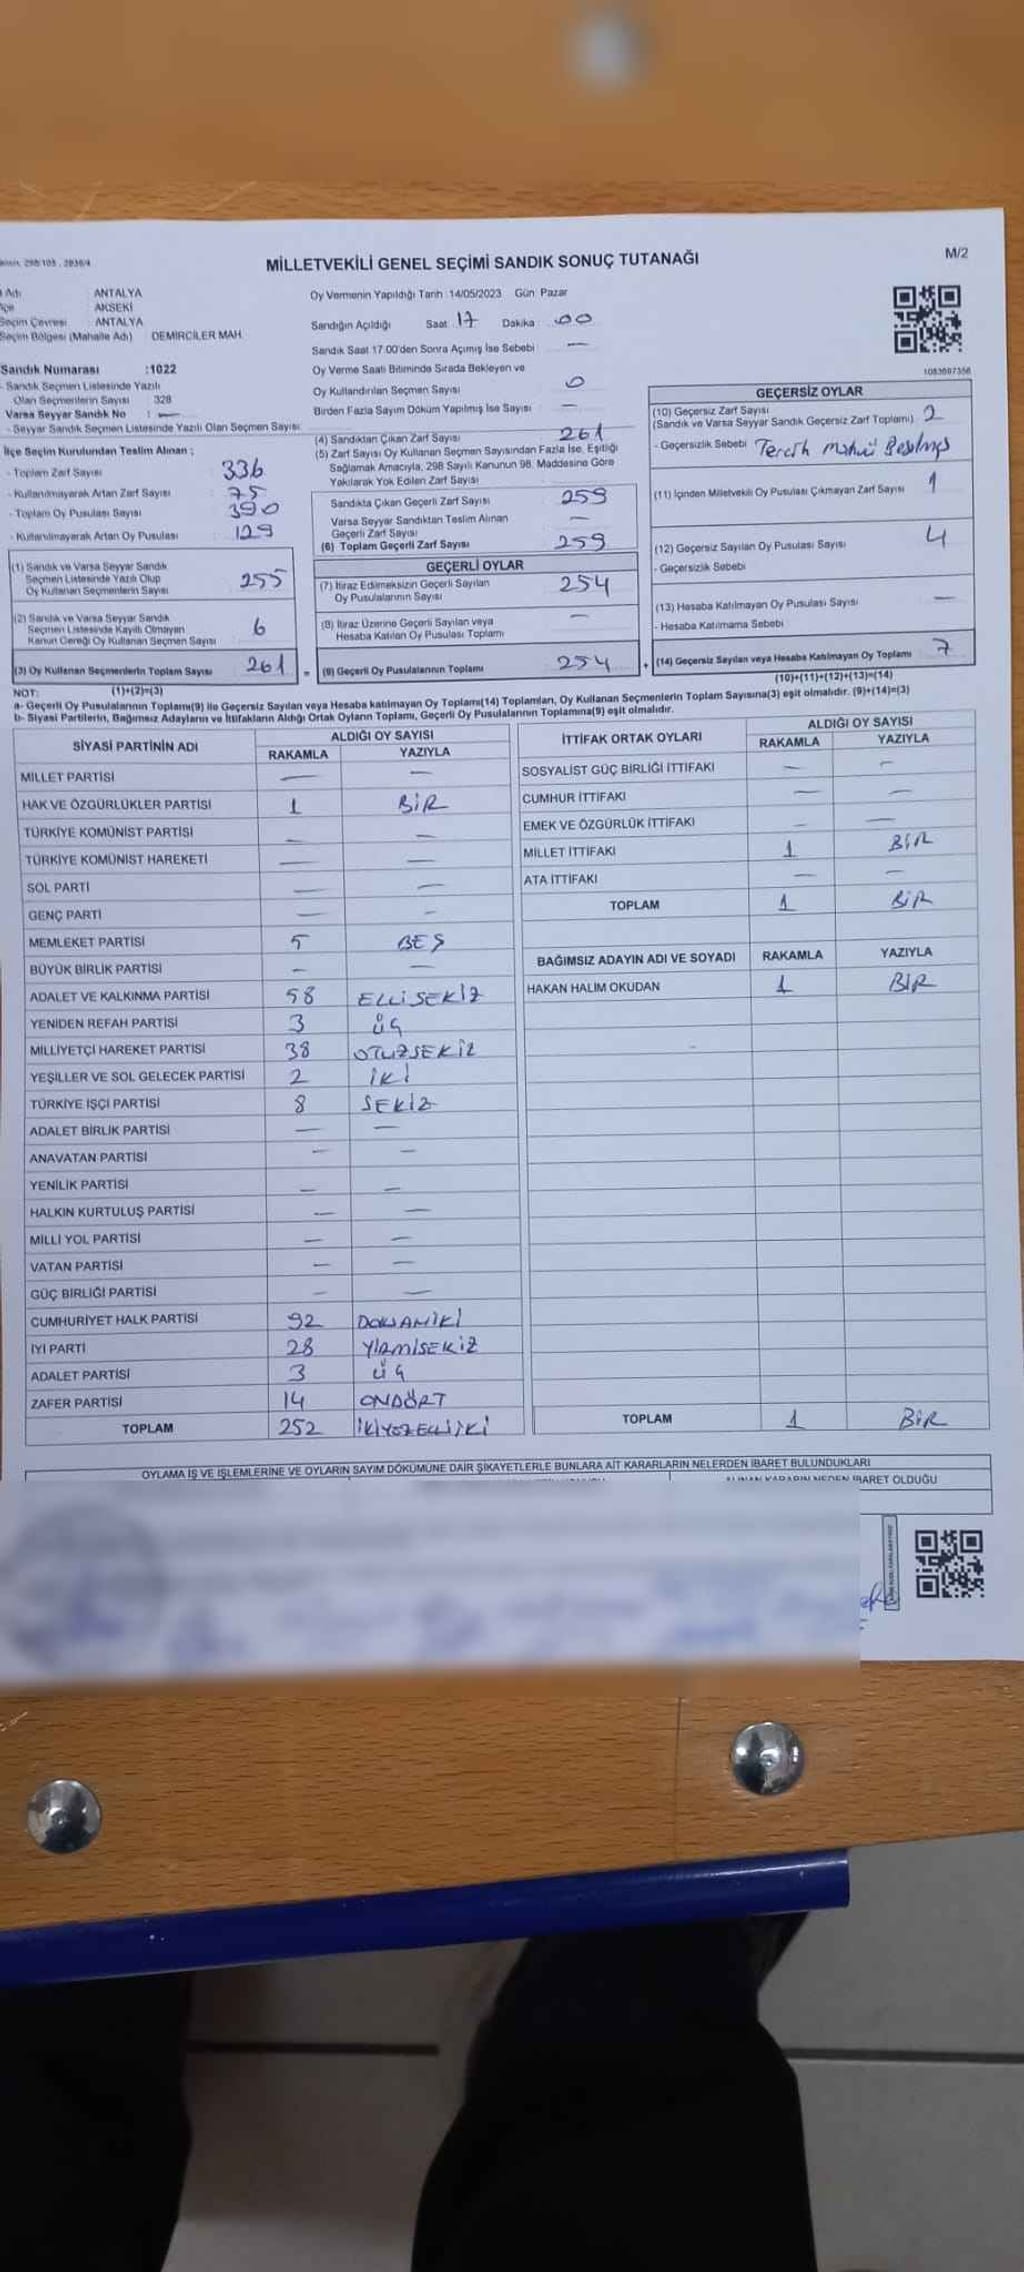 MİLLETVEKİLİ GENEL SEÇİMİ SANDIK SONUÇ TUTANAĞI
M/2
ANTALYA
AKSEKİ
Seçim Çevresi : ANTALYA
Seçim Bölgesi (Mahalle Adı) : DEMİRCİLER MAH.
Sandık Numarası :1022
- Sandık Seçmen Listesinde Yazılı
Olan Seçmenlerin Sayısı : 328
Varsa Seyyar Sandık No : —
- Seyyar Sandık Seçmen Listesinde Yazılı Olan Seçmen Sayısı:
İlçe Seçim Kurulundan Teslim Alınan ;
- Toplam Zarf Sayısı : 336
- Kullanılmayarak Artan Zarf Sayısı : 75
- Toplam Oy Pusulası Sayısı : 390
- Kullanılmayarak Artan Oy Pusulası : 129
(1) Sandık ve Varsa Seyyar Sandık
Seçmen Listesinde Yazılı Olup
Oy Kullanan Seçmenlerin Sayısı : 255
(2) Sandık ve Varsa Seyyar Sandık
Seçmen Listesinde Kayıtlı Olmayan
Kanun Gereği Oy Kullanan Seçmen Sayısı : 6
(3) Oy Kullanan Seçmenlerin Toplam Sayısı : 261
Oy Vermenin Yapıldığı Tarih :14/05/2023 Gün: Pazar
Sandığın Açıldığı Saat : 17 Dakika : 00
Sandık Saat 17.00'den Sonra Açımış İse Sebebi : —
Oy Verme Saati Bitiminde Sırada Bekleyen ve
Oy Kullandırılan Seçmen Sayısı : 0
Birden Fazla Sayım Döküm Yapılmış İse Sayısı : —
(4) Sandıktan Çıkan Zarf Sayısı : 261
(5) Zarf Sayısı Oy Kullanan Seçmen Sayısından Fazla İse, Eşitliği
Sağlamak Amacıyla, 298 Sayılı Kanunun 98. Maddesine Göre
Yakılarak Yok Edilen Zarf Sayısı :
Sandıkta Çıkan Geçerli Zarf Sayısı : 259
Varsa Seyyar Sandıktan Teslim Alınan
Geçerli Zarf Sayısı : —
(6) Toplam Geçerli Zarf Sayısı : 259
GEÇERLİ OYLAR
(7) İtiraz Edilmeksizin Geçerli Sayılan
Oy Pusulalarının Sayısı : 254
(8) İtiraz Üzerine Geçerli Sayılan veya
Hesaba Katılan Oy Pusulası Toplamı : —
= (9) Geçerli Oy Pusulalarının Toplamı : 254
1083697356
GEÇERSİZ OYLAR
(10) Geçersiz Zarf Sayısı
(Sandık ve Varsa Seyyar Sandık Geçersiz Zarf Toplamı) : 2
- Geçersizlik Sebebi : Tercih Mührü Basılmış
(11) İçinden Milletvekili Oy Pusulası Çıkmayan Zarf Sayısı : 1
(12) Geçersiz Sayılan Oy Pusulası Sayısı : 4
- Geçersizlik Sebebi :
(13) Hesaba Katılmayan Oy Pusulası Sayısı : —
- Hesaba Katılmama Sebebi :
+ (14) Geçersiz Sayılan veya Hesaba Katılmayan Oy Toplamı : 7
NOT: (1)+(2)=(3) (10)+(11)+(12)+(13)=(14)
a- Geçerli Oy Pusulalarının Toplamı(9) ile Geçersiz Sayılan veya Hesaba katılmayan Oy Toplamı(14) Toplamları, Oy Kullanan Seçmenlerin Toplam Sayısına(3) eşit olmalıdır. (9)+(14)=(3)
b- Siyasi Partilerin, Bağımsız Adayların ve İttifakların Aldığı Ortak Oyların Toplamı, Geçerli Oy Pusulalarının Toplamına(9) eşit olmalıdır.
SİYASİ PARTİNİN ADI ALDIĞI OY SAYISI
RAKAMLA YAZIYLA
MİLLET PARTİSİ — —
HAK VE ÖZGÜRLÜKLER PARTİSİ 1 BİR
TÜRKİYE KOMÜNİST PARTİSİ — —
TÜRKİYE KOMÜNİST HAREKETİ — —
SOL PARTİ — —
GENÇ PARTİ — —
MEMLEKET PARTİSİ 5 BEŞ
BÜYÜK BİRLİK PARTİSİ — —
ADALET VE KALKINMA PARTİSİ 58 ELLİSEKİZ
YENİDEN REFAH PARTİSİ 3 ÜÇ
MİLLİYETÇİ HAREKET PARTİSİ 38 OTUZSEKİZ
YEŞİLLER VE SOL GELECEK PARTİSİ 2 İKİ
TÜRKİYE İŞÇİ PARTİSİ 8 SEKİZ
ADALET BİRLİK PARTİSİ — —
ANAVATAN PARTİSİ — —
YENİLİK PARTİSİ — —
HALKIN KURTULUŞ PARTİSİ — —
MİLLİ YOL PARTİSİ — —
VATAN PARTİSİ — —
GÜÇ BİRLİĞİ PARTİSİ — —
CUMHURİYET HALK PARTİSİ 92 DOKSANİKİ
İYİ PARTİ 28 YİRMİSEKİZ
ADALET PARTİSİ 3 ÜÇ
ZAFER PARTİSİ 14 ONDÖRT
TOPLAM 252 İKİYÜZELLİİKİ
İTTİFAK ORTAK OYLARI ALDIĞI OY SAYISI
RAKAMLA YAZIYLA
SOSYALİST GÜÇ BİRLİĞİ İTTİFAKI — —
CUMHUR İTTİFAKI — —
EMEK VE ÖZGÜRLÜK İTTİFAKI — —
MİLLET İTTİFAKI 1 BİR
ATA İTTİFAKI — —
TOPLAM 1 BİR
BAĞIMSIZ ADAYIN ADI VE SOYADI RAKAMLA YAZIYLA
HAKAN HALİM OKUDAN 1 BİR
TOPLAM 1 BİR
OYLAMA İŞ VE İŞLEMLERİNE VE OYLARIN SAYIM DÖKÜMÜNE DAİR ŞİKAYETLERLE BUNLARA AİT KARARLARIN NELERDEN İBARET BULUNDUKLARI
ALINAN KARARIN NEDEN İBARET OLDUĞU